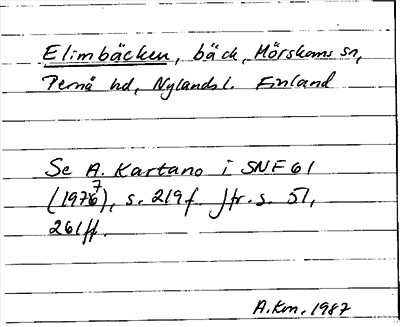 Elimbäcken, bäck, Mörskoms sn,
Pernå hd, Nylands l. Finland
Se A. Kartano i SNF 61
(1977), s. 219 f. Jfr. s. 51,
261 ff.
A.Km. 1987